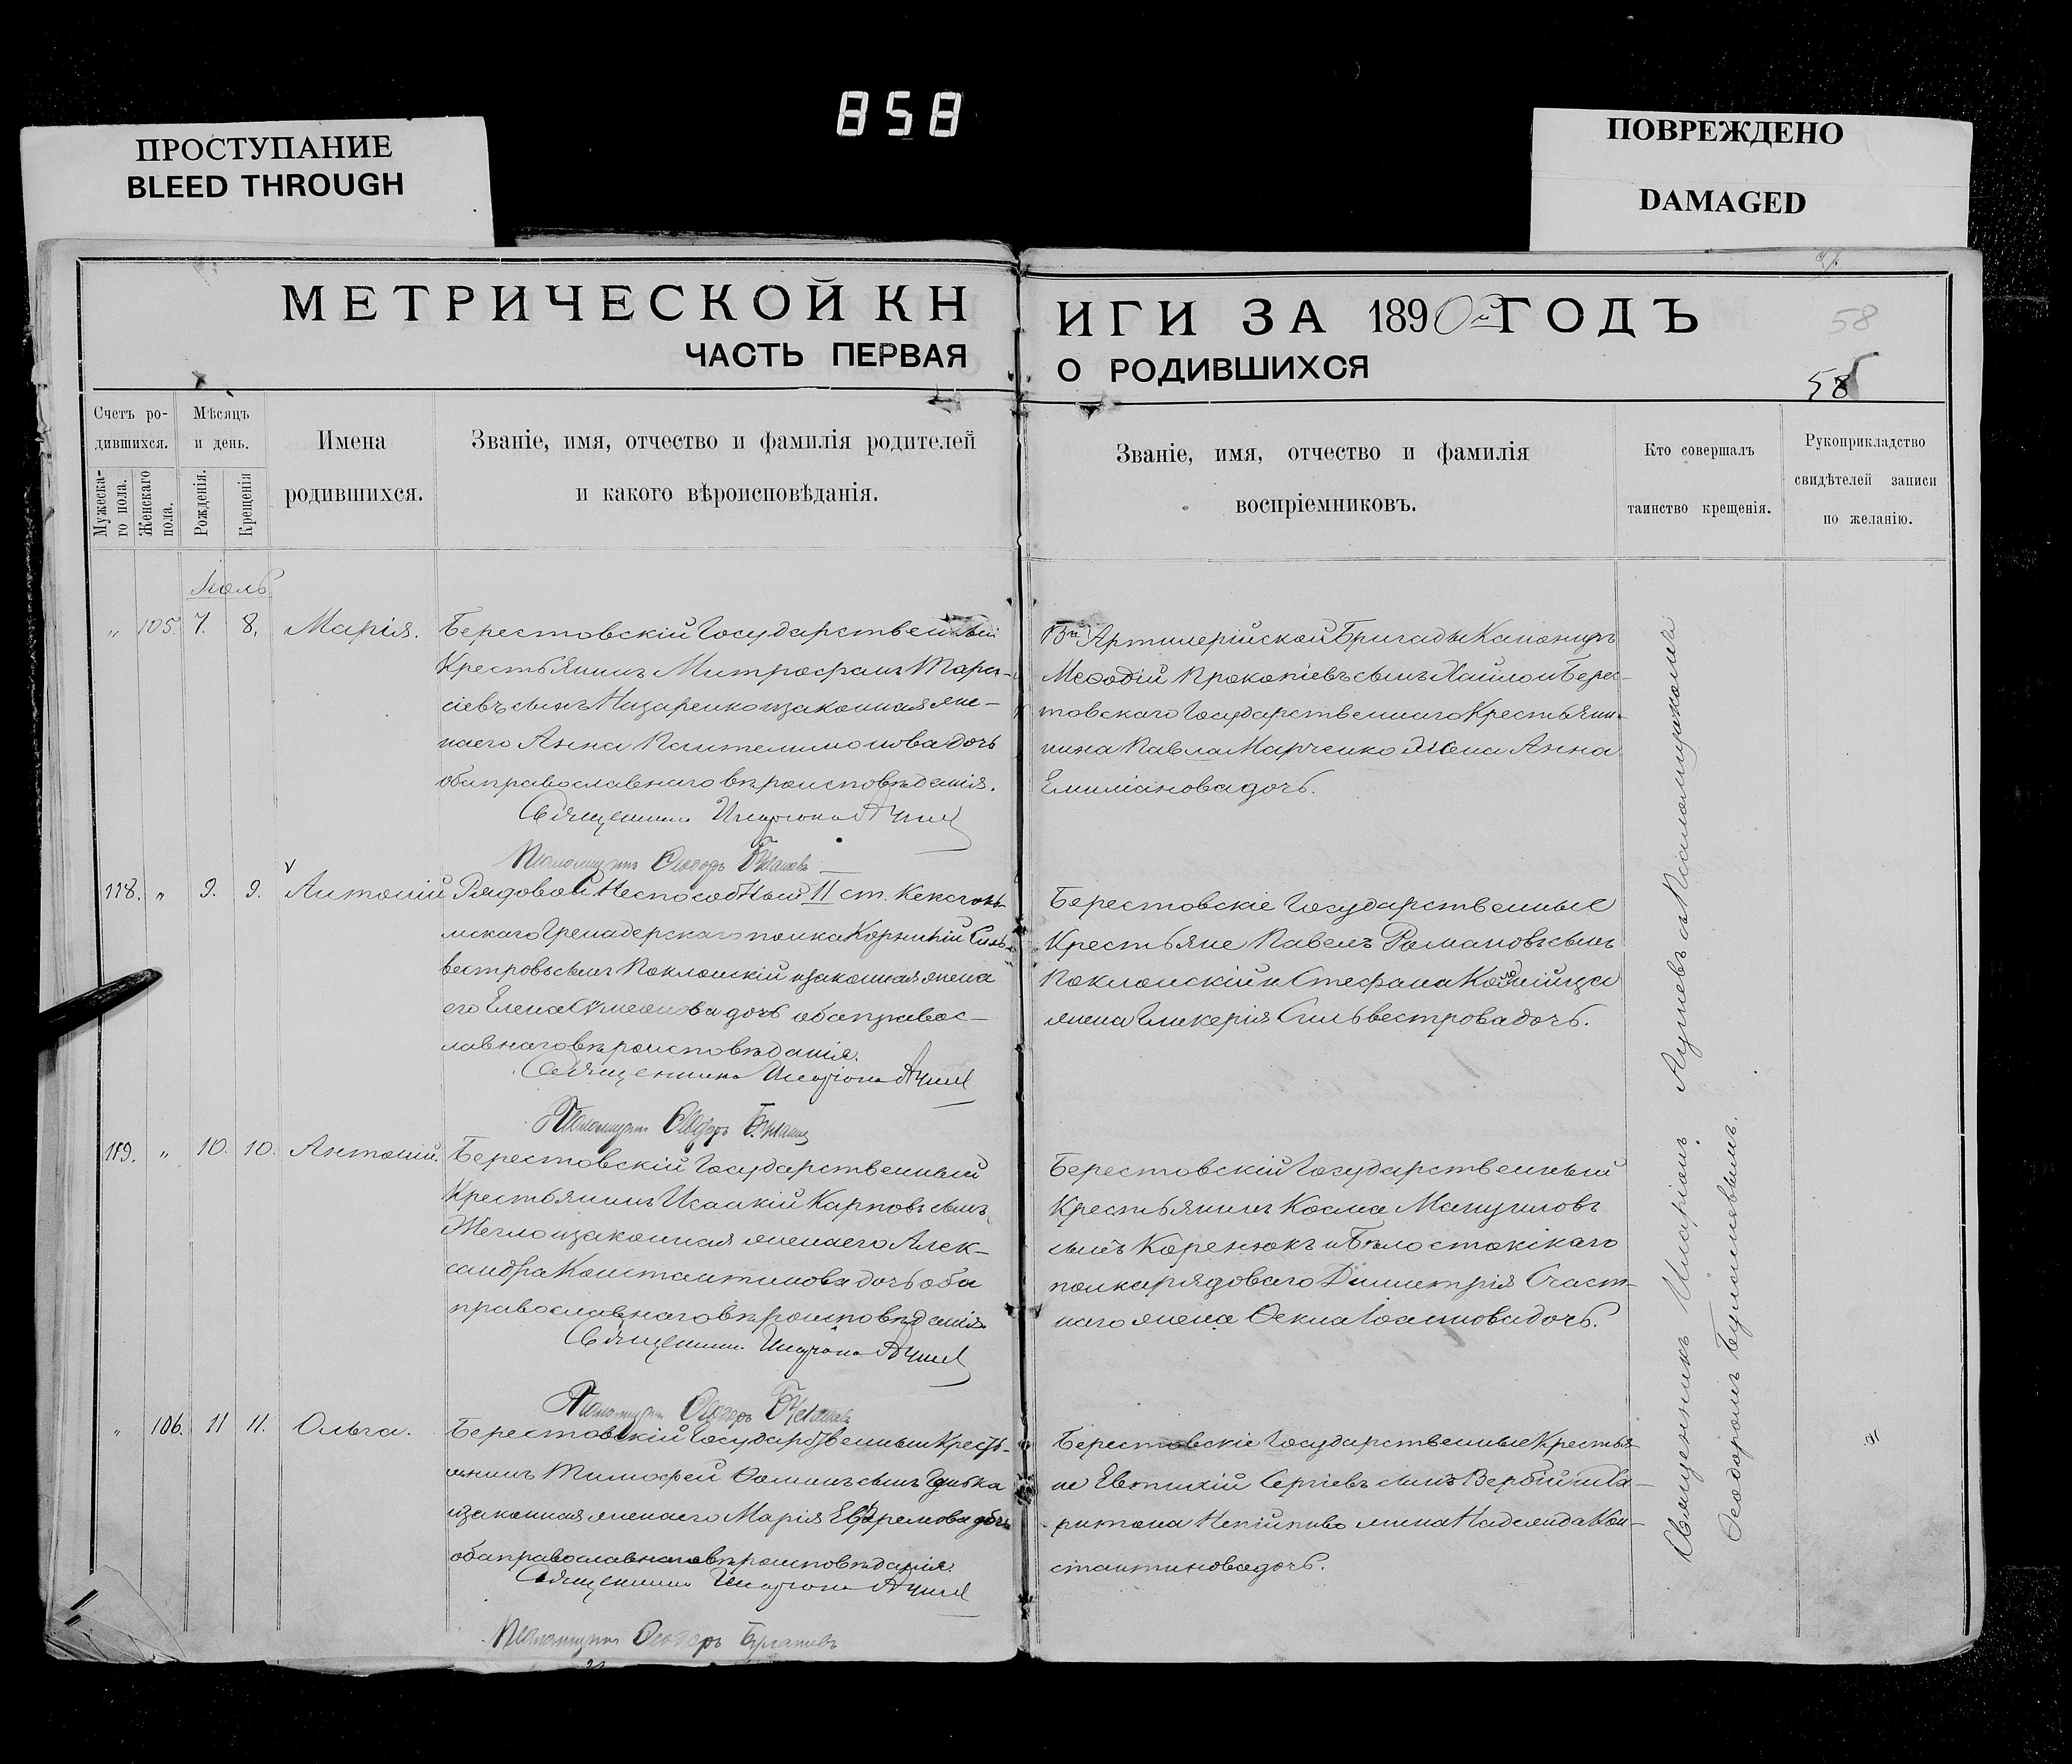 858
ПРОСТУПАНИЕ
BLEED THROUGH
ПОВРЕЖДЕНО
DAMAGED
МЕТРИЧЕСКОЙ КН
ЧАСТЬ ПЕРВАЯ
ИГИ ЗА 1890й ГОДЪ
О РОДИВШИХСЯ
58
58
Счетъ ро-
дившихся.
Мужеска-
го пола.
Женскаго
пола.
Мѣсяцъ
и день.
Рожденія.
Крещенія
Имена
родившихся.
Званіе, имя, отчество и фамилія родителей
и какого вѣроисповѣданія.
Званіе, имя, отчество и фамилія
воспріемниковъ.
Кто совершалъ
таинство крещенія.
Рукоприкладство
свидѣтелей записи
по желанію.
Іюль
„ 105. 7. 8. Марія.
Берестовскій Государственный
Крестьянинъ Митрофанъ Тара-
сіевъ сынъ Назаренко и законная же-
на его Анна Пантелимонова дочь
оба православнаго вѣроисповѣданія.
Священникъ Иларіонъ
Псаломщикъ Ѳеодоръ
Артилерійской Бригады Канониръ
Меѳодій Прокопіевъ сынъ и Берес-
товскаго Государственнаго Крестьян-
ина Павла Марченко жена Анна
Емиліанова дочь.
118. „ 9. 9. Антоній
Рядовой Неспособный II ст. Кексголь-
мскаго Гренадерскаго полка Корнилій Силь-
вестровъ сынъ Поклонскій и законная жена
его Елена Симеонова дочь оба правос-
лавнаго вѣроисповѣданія.
Священникъ Иларіонъ
Псаломщикъ Ѳеодоръ
Берестовскіе Государственные
Крестьяне Павелъ Романовъ сынъ
Поклонскій и Стефана Коломійца
жена Гликерія Сильвестрова дочь.
119. „ 10. 10. Антоній.
Берестовскій Государственный
Крестьянинъ Исаакій Карповъ сынъ
Жегло и законная жена его Алек-
сандра Константинова дочь оба
православнаго вѣроисповѣданія.
Священникъ Иларіонъ
Псаломщикъ Ѳеодоръ
Берестовскій Государственный
Крестьянинъ Косма Мануиловъ
сынъ Коренюкъ и Бѣлостокскаго
полка рядоваго Димитрія Счаст-
наго жена Ѳекла Іоаннова дочь.
„ 106. 11 11. Ольга.
Берестовскій Государственный Кресть-
янинъ Тимофей Ѳоминъ сынъ
и законная жена его Марія Ефремова дочь
оба православнаго вѣроисповѣданія.
Священникъ Иларіонъ
Псаломщикъ Ѳеодоръ
Берестовскіе Государственные Крестья-
не Евтихій Сергіевъ сынъ Вербій и Ха-
ритона Непійпиво жена Надежда Кон-
стантинова дочь.
Священникъ Иларіонъ съ Псаломщикомъ
Ѳеодоромъ